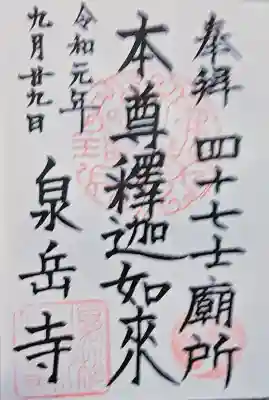 奉拜
四十七士廟所
本尊釋迦如來
令和元年
九月廿九日
泉岳寺